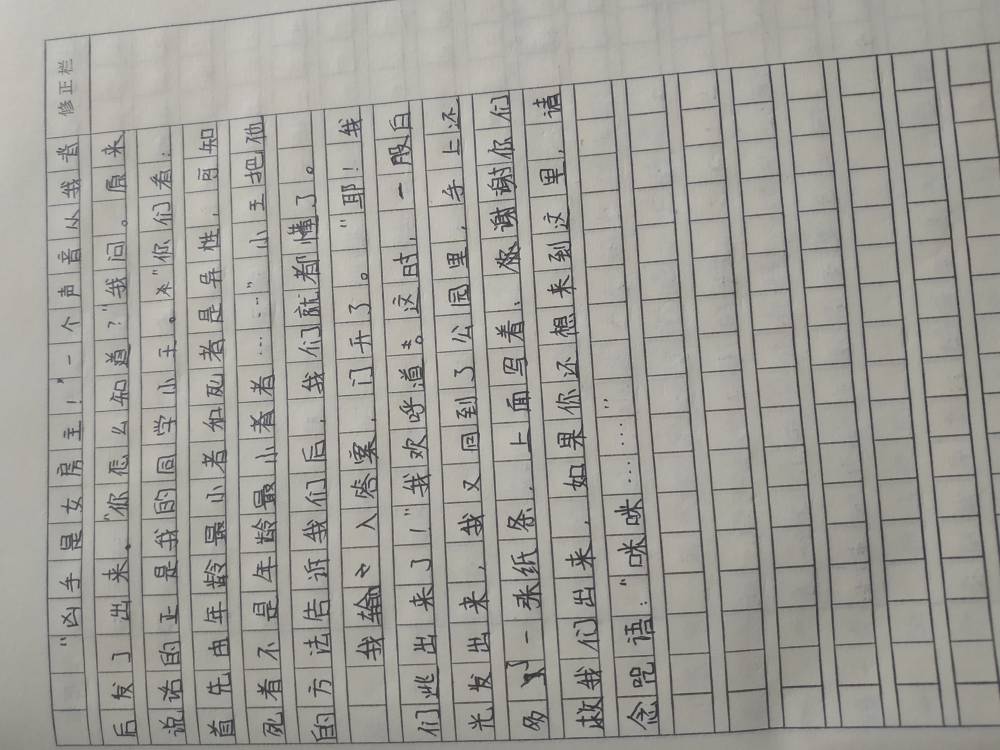 修正栏
“凶手是女房主！”一个声音从我背
后发了出来。“你怎么知道？”我问。原来
说话的正是我的同学小王。“你们看：
首先由年龄最小者和死者是异性，可知
死者不是年龄最小者者……”小王把他
的方法告诉我们后，我们就都懂了。
我输入答案，门开了。“耶！我
们逃出来了！”我欢呼道。这时，一股白
光发出来，我又回到了公园里，手上还
多了一张纸条，上面写着、谢谢你们
救我们出来，如果你还想来到这里，请
念咒语：“咪咪咪……”